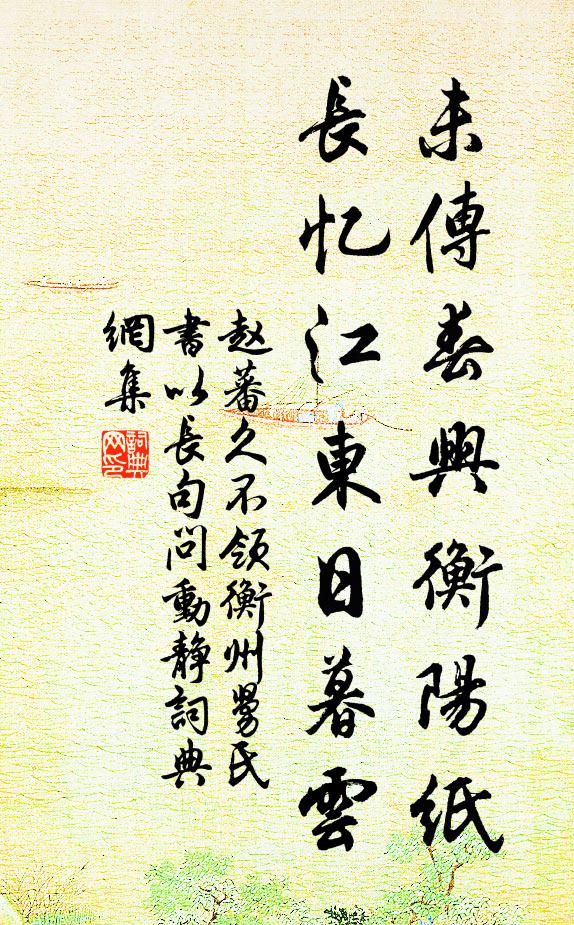 未傳春興衡陽紙
長忆江東日暮雲
赵蕃久不领衡州舅氏
書以長句問動静詞典
網集
詞典网印